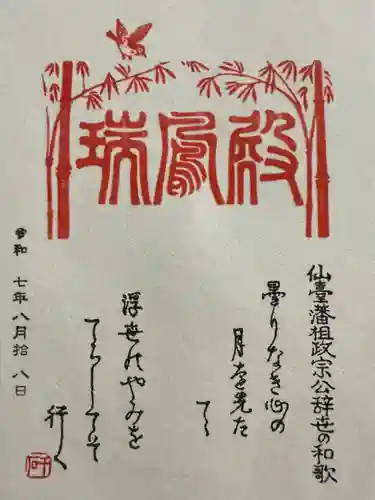 瑞鳳殿
仙臺藩祖政宗公辞世の和歌
曇りなき心の
月を先だ
てゝ
浮世のやみを
てらしてぞ
行く
令和 七年八月拾八日